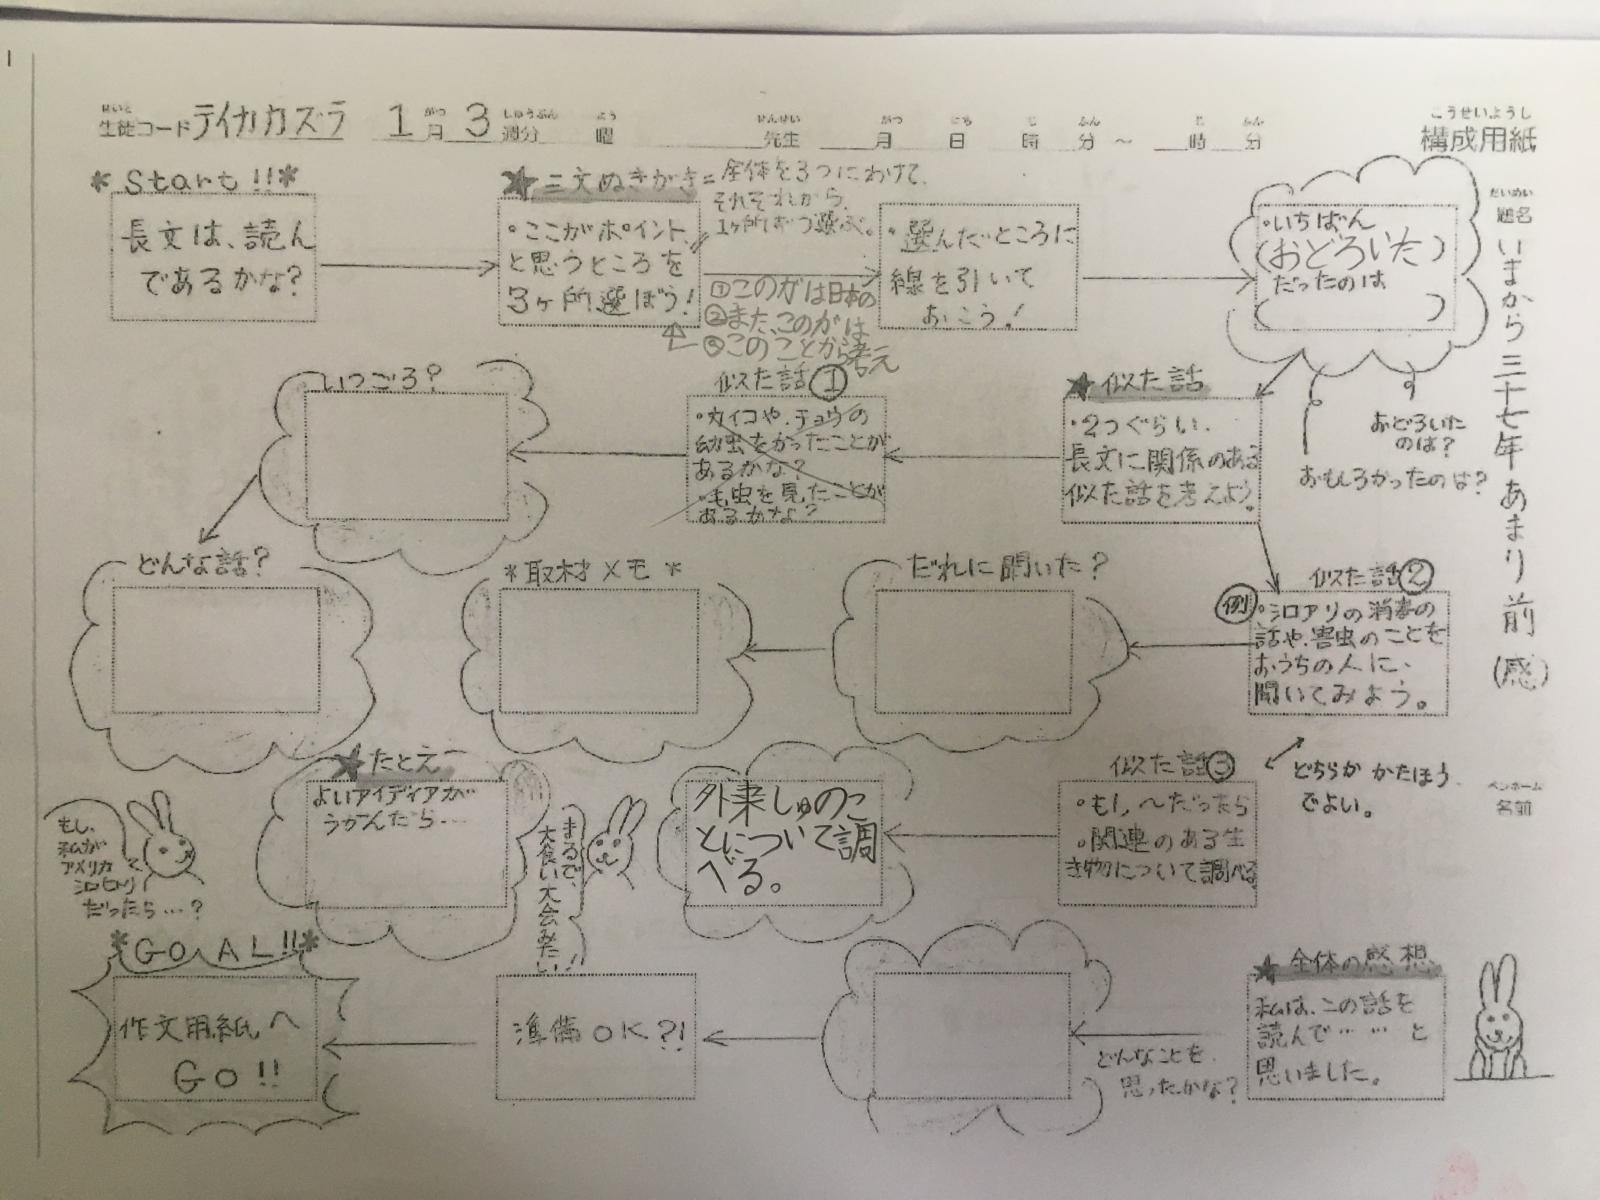 1
せいと がつ しゅうぶん よう せんせい がつ にち じ ふん じ ふん
生徒コード テイカカズラ 1月 3週分 曜 先生 月 日 時 分 ～ 時 分
こうせいようし
構成用紙
だいめい
題名
いまから三十七年あまり前(感)
ペンネーム
名前
*Start!!*
長文は、読ん
であるかな?
★三文ぬきがき=全体を3つにわけて、
それぞれから、
1ヶ所ずつ選ぶ。
・ここがポイント、
と思うところを
3ヶ所選ぼう!
①このガは日本の
②また、このガは
③このことから考え
・選んだところに
線を引いて
おこう!
・いちばん
(おどろいた)
だったのは
( )
おどろいた
のは?
おもしろかったのは?
★似た話
・2つぐらい、
長文に関係のある
似た話を考えよう。
似た話①
・カイコや、チョウの
幼虫をかったことが
あるかな?
・毛虫を見たことが
あるかな?
いつごろ?
どんな話?
似た話②
例
・シロアリの消毒の
話や、害虫のことを
おうちの人に、
聞いてみよう。
だれに聞いた?
*取材メモ*
どちらか かたほう
でよい。
似た話③
・もし、〜だったら
・関連のある生
き物について調べる
外来しゅのこ
とについて調
べる。
★たとえ
よいアイディアが
うかんだら…
まるで、
大食い大会みたい!
もし、
私が
アメリカ
シロヒトリ
だったら…?
★全体の感想
私は、この話を
読んで……と
思いました。
どんなことを
思ったかな?
準備OK?!
*GOAL!!*
作文用紙へ
GO!!